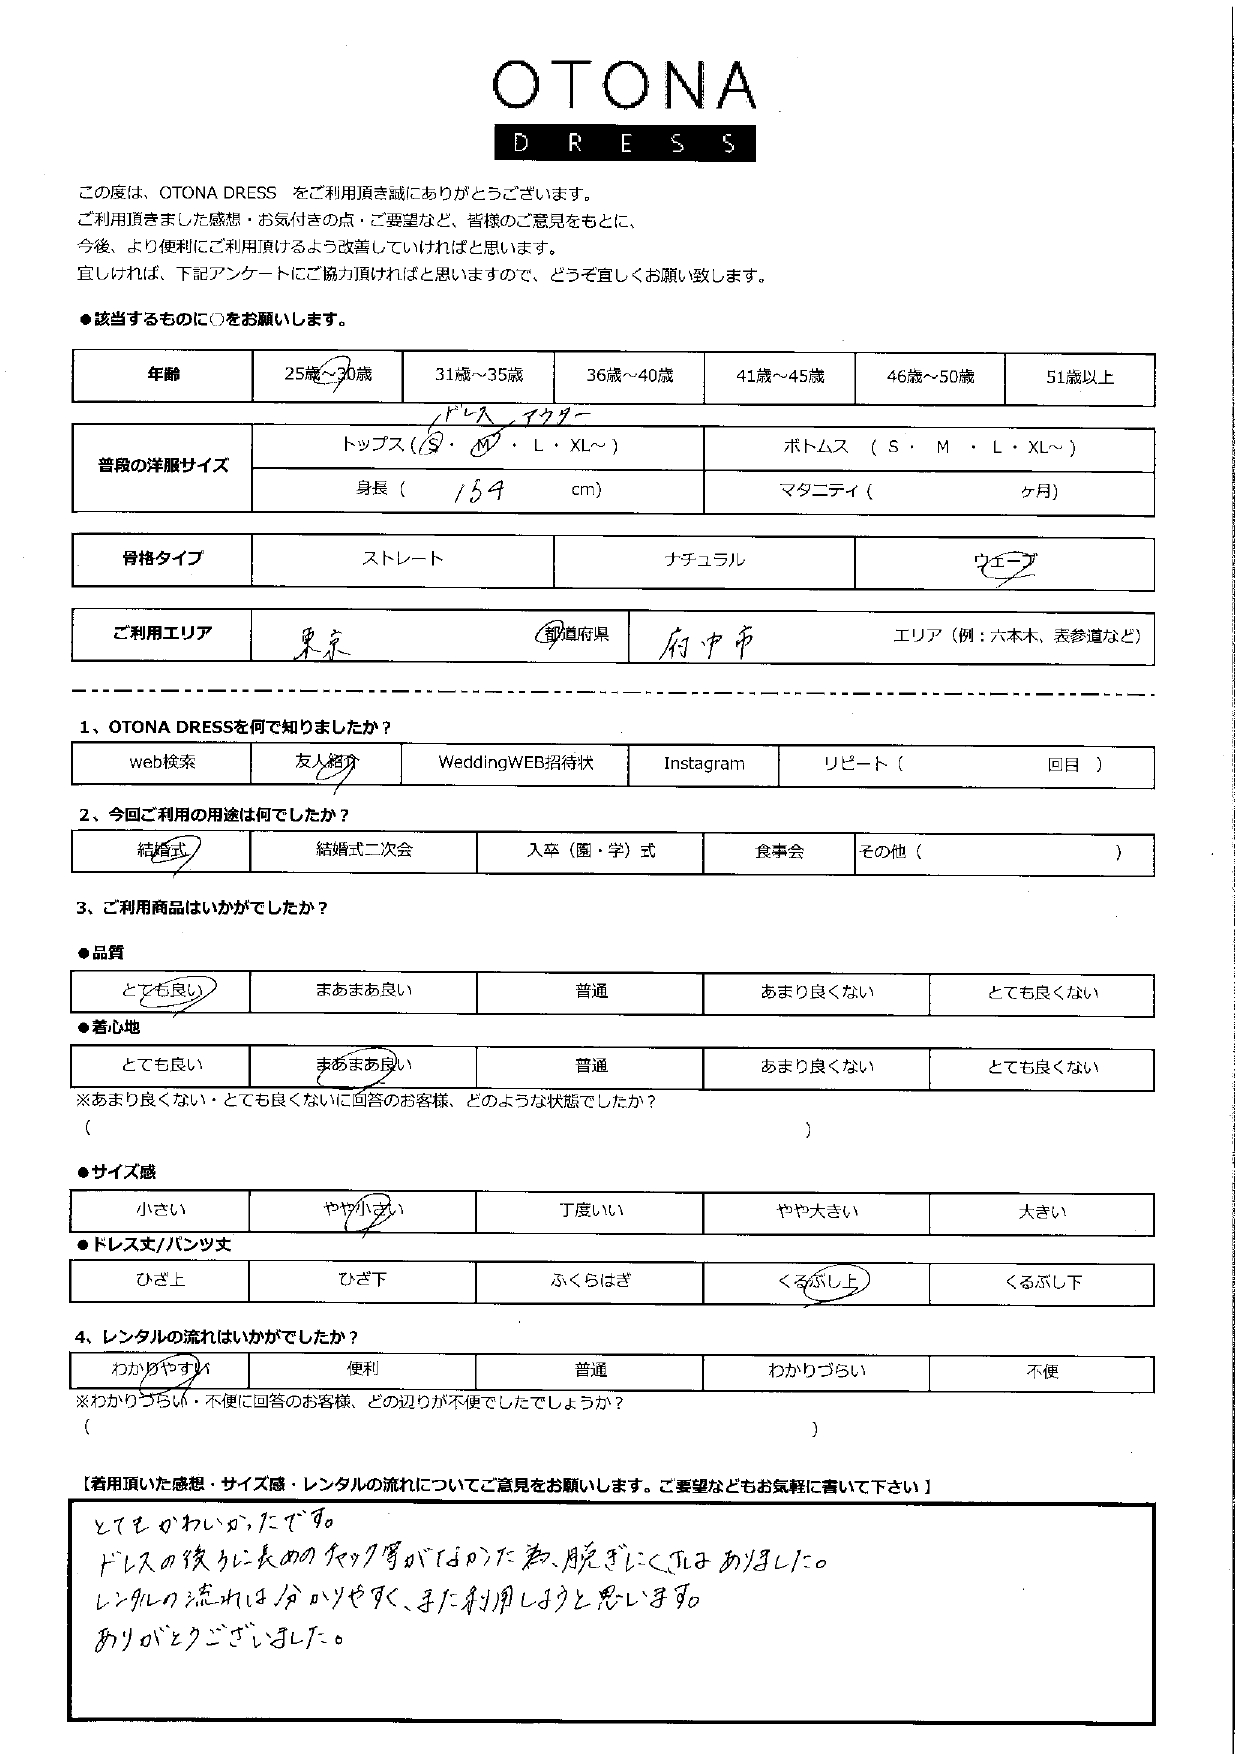 OTONA
DRESS
この度は、OTONA DRESS をご利用頂き誠にありがとうございます。
ご利用頂きました感想・お気付きの点・ご要望など、皆様のご意見をもとに、
今後、より便利にご利用頂けるよう改善していければと思います。
宜しければ、下記アンケートにご協力頂ければと思いますので、どうぞ宜しくお願い致します。
●該当するものに○をお願いします。
年齢 25歳～30歳 31歳～35歳 36歳～40歳 41歳～45歳 46歳～50歳 51歳以上
ドレス アウター
普段の洋服サイズ トップス ( S ・ M ・ L ・ XL～ ) ボトムス ( S ・ M ・ L ・ XL～ )
身長 ( 154 cm) マタニティ ( ヶ月)
骨格タイプ ストレート ナチュラル ウェーブ
ご利用エリア 東京 都道府県 府中市 エリア（例：六本木、表参道など）
1、OTONA DRESSを何で知りましたか？
web検索 友人紹介 WeddingWEB招待状 Instagram リピート ( 回目 )
2、今回ご利用の用途は何でしたか？
結婚式 結婚式二次会 入卒（園・学）式 食事会 その他 ( )
3、ご利用商品はいかがでしたか？
●品質
とても良い まあまあ良い 普通 あまり良くない とても良くない
●着心地
とても良い まあまあ良い 普通 あまり良くない とても良くない
※あまり良くない・とても良くないに回答のお客様、どのような状態でしたか？
( )
●サイズ感
小さい やや小さい 丁度いい やや大きい 大きい
●ドレス丈/パンツ丈
ひざ上 ひざ下 ふくらはぎ くるぶし上 くるぶし下
4、レンタルの流れはいかがでしたか？
わかりやすい 便利 普通 わかりづらい 不便
※わかりづらい・不便に回答のお客様、どの辺りが不便でしたでしょうか？
( )
【着用頂いた感想・サイズ感・レンタルの流れについてご意見をお願いします。ご要望などもお気軽に書いて下さい】
とてもかわいかったです。
ドレスの後ろに長めのチャック等がなかった為、脱ぎにくさはありました。
レンタルの流れは分かりやすく、また利用しようと思います。
ありがとうございました。